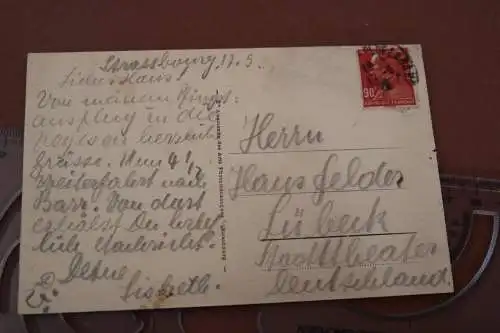 Strassbourg, 17.5.
Lieber Hans!
Von meinem Pfingst-
ausflug in die
Vogesen herzliche
Grüsse. Um 4 1/2
Weiterfahrt nach
Barr. Von dort
erhälst Du
Nachricht.
Deine
Lisbeth.
Herrn
Hans Felder
Lübeck
Stadttheater
Deutschland.
90